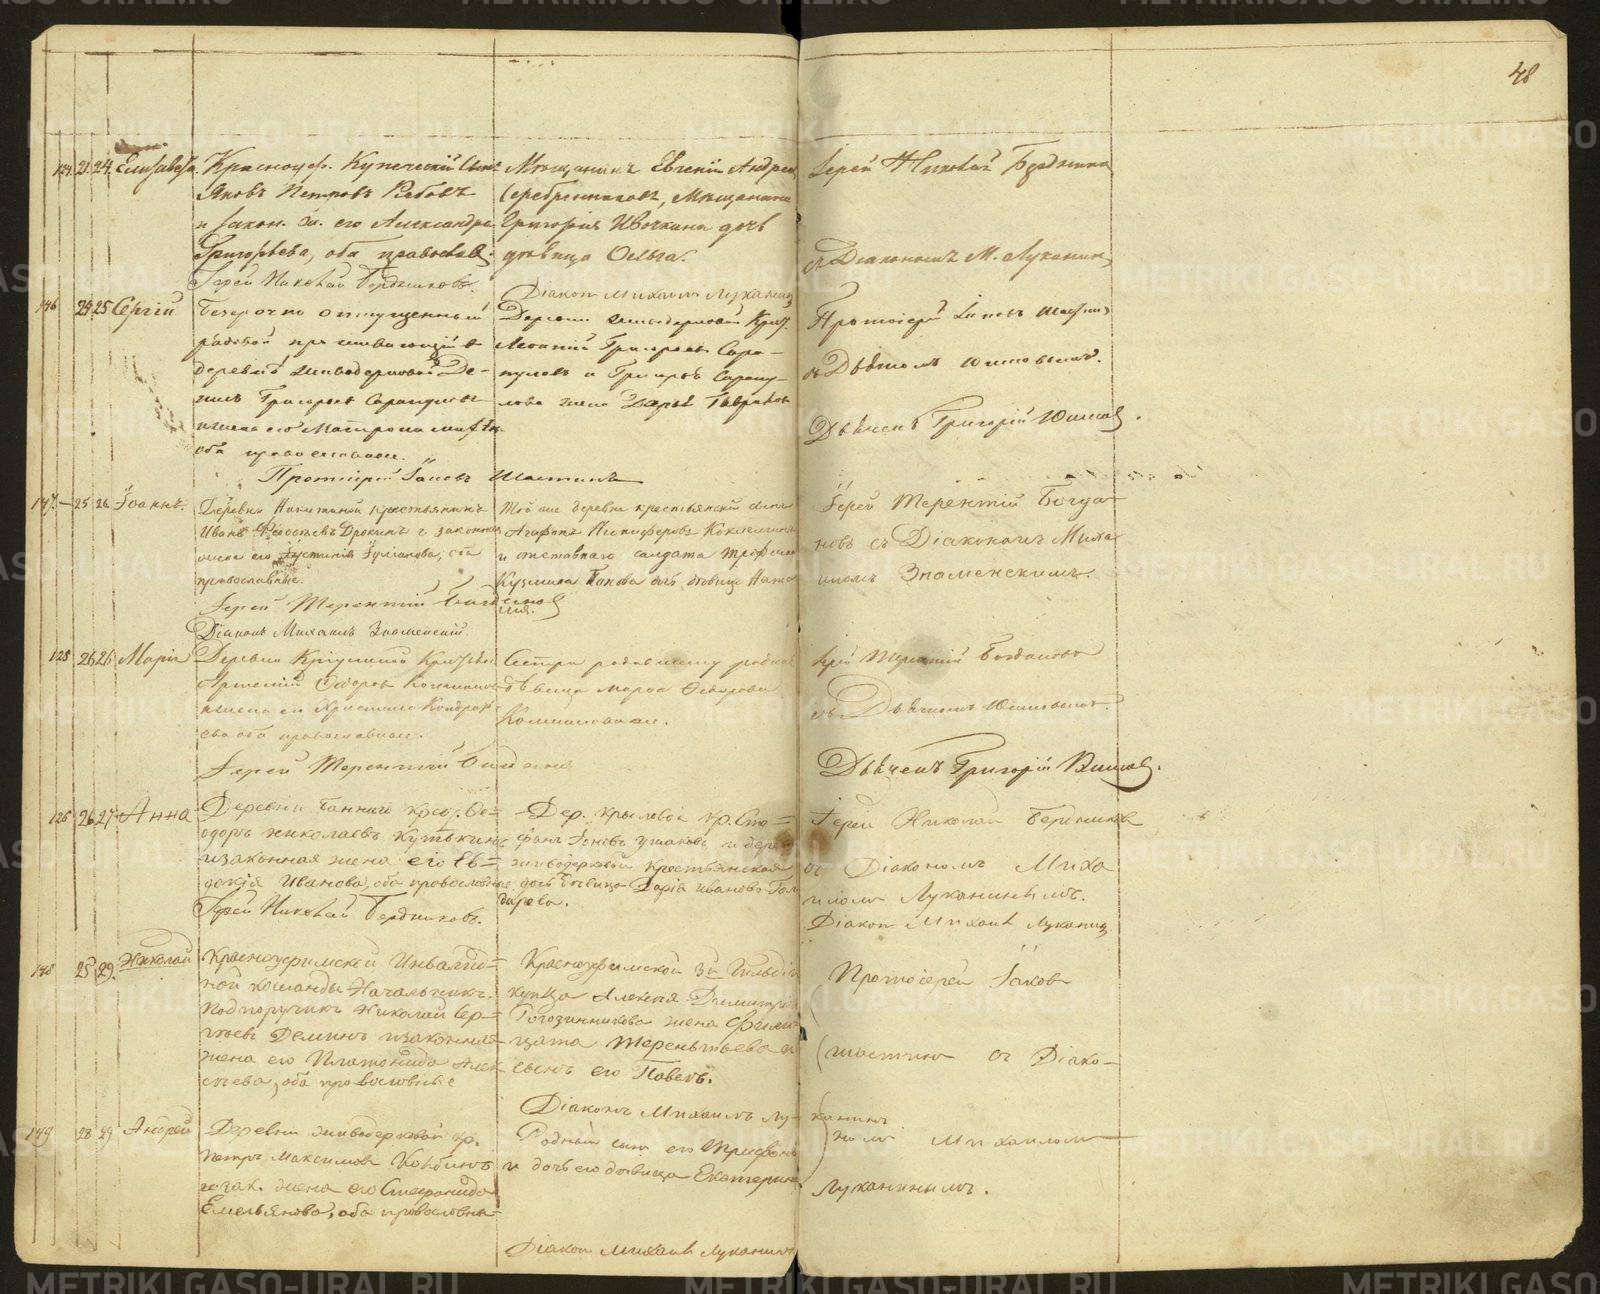 48
124. 21. 24. Елисавета.
Красноуф. Купеческій Сынъ
Яковъ Петровъ Рябовъ
и закон. жа. его Александра
Григорьева, оба православ.
Іерей Николай Бердниковъ.
Мѣщанинъ Евгеній Андреев
Серебренниковъ, Мѣщанина
Григорія Ивочкина дочь
дѣвица Ольга.
Діакон Михаилъ Луканин
Іерей Николай Бердников
съ Діакономъ М. Луканин
146 24 25 Сергій
Безсрочно отпущенный
рядовой проживающій в
деревнѣ Шиводеровой Де-
Григорьев Сарапулов
и жена его Матрона
оба православные.
Протоіерей Іаковъ Шастинъ
Деревни Крес.
Григорьев Сара-
пулов и Григорья Сарапу-
лова жена Дарья Гаврилов
Протоіерей Іаковъ Шастин
съ Дьячкомъ Юшковымъ.
Дьячекъ Григорій Юшков.
147. 25 26 Іоаннъ.
Деревни Никитиной крестьянинъ
Иванъ Дрокинъ и законная
жена его Іустинія оба
православные.
Іерей Терентій Богдановъ
Діаконъ Михаилъ Знаменскій.
Той же деревни крестьянскій сынъ
Агафонъ Никифоровъ
и отставнаго солдата Трофима
Кузмина дочь дѣвица Ната
лія.
Іерей Терентій Богда-
новъ съ Діакономъ Миха
иломъ Знаменскимъ.
125 26 26 Марія
Деревни
Артемій Ѳедоров
и жена его Христина Кондрать
ева оба православные.
Іерей Терентій Богданов
Сестра
дѣвица Марѳа Ѳедорова
Іерей Терентій Богданов
съ Дьячкомъ Юшковымъ.
Дьячекъ Григорій Юшков.
126 26 27 Анна
Деревни Банного крес. Ѳе-
одоръ Николаевъ Кутькинъ
и законная жена его Ев=
докія Иванова, оба православные
Іерей Николай Бердниковъ.
Дер. Крыловой кр. Сте=
фанъ Іоновъ Ушаковъ и дерев
Шиводеровой крестьянская
дочь дѣвица Дарія Иванова
Іерей Николай Бердников
съ Діакономъ Миха
иломъ Луканинымъ.
Діакон Михаил Луканин
148 25 29. Николай
Красноуфимской Инвалид=
ной команды Начальникъ
Подпоручикъ Николай Сер=
гѣевъ Деминъ и законная
жена его Платонида Алек
сѣева, оба православные
Красноуфимской 3й Гильдіи
купца Алексѣя Димитрі
Рогозинникова жена Фили=
цата Терентьева и
сынъ его Павелъ.
Діаконъ Михаилъ Лу-
канинъ
Протоіерей Іаков
Шастинъ съ Діако-
номъ Михаиломъ
Луканинымъ.
149 28 29 Андрей
Деревни Шиводеровой кр.
Петръ Максимовъ
и зак. жена его Стефанида
Емельянова, оба православны
Родный сынъ его Трифонъ
и дочь его дѣвица Екатерин
Діакон Михаил Луканинъ